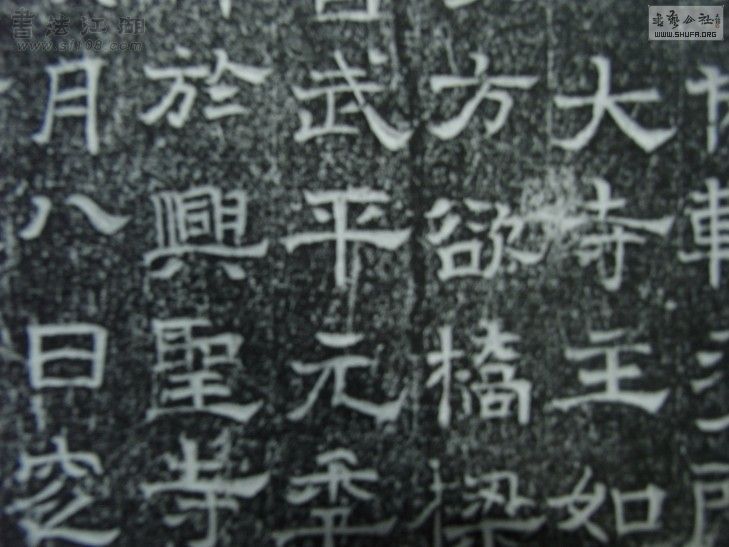 大寺主如
方欲橋
武平元年
於興聖寺
月八日窆
書法江湖
www.sf108.com
書藝公社
www.SHUFA.ORG